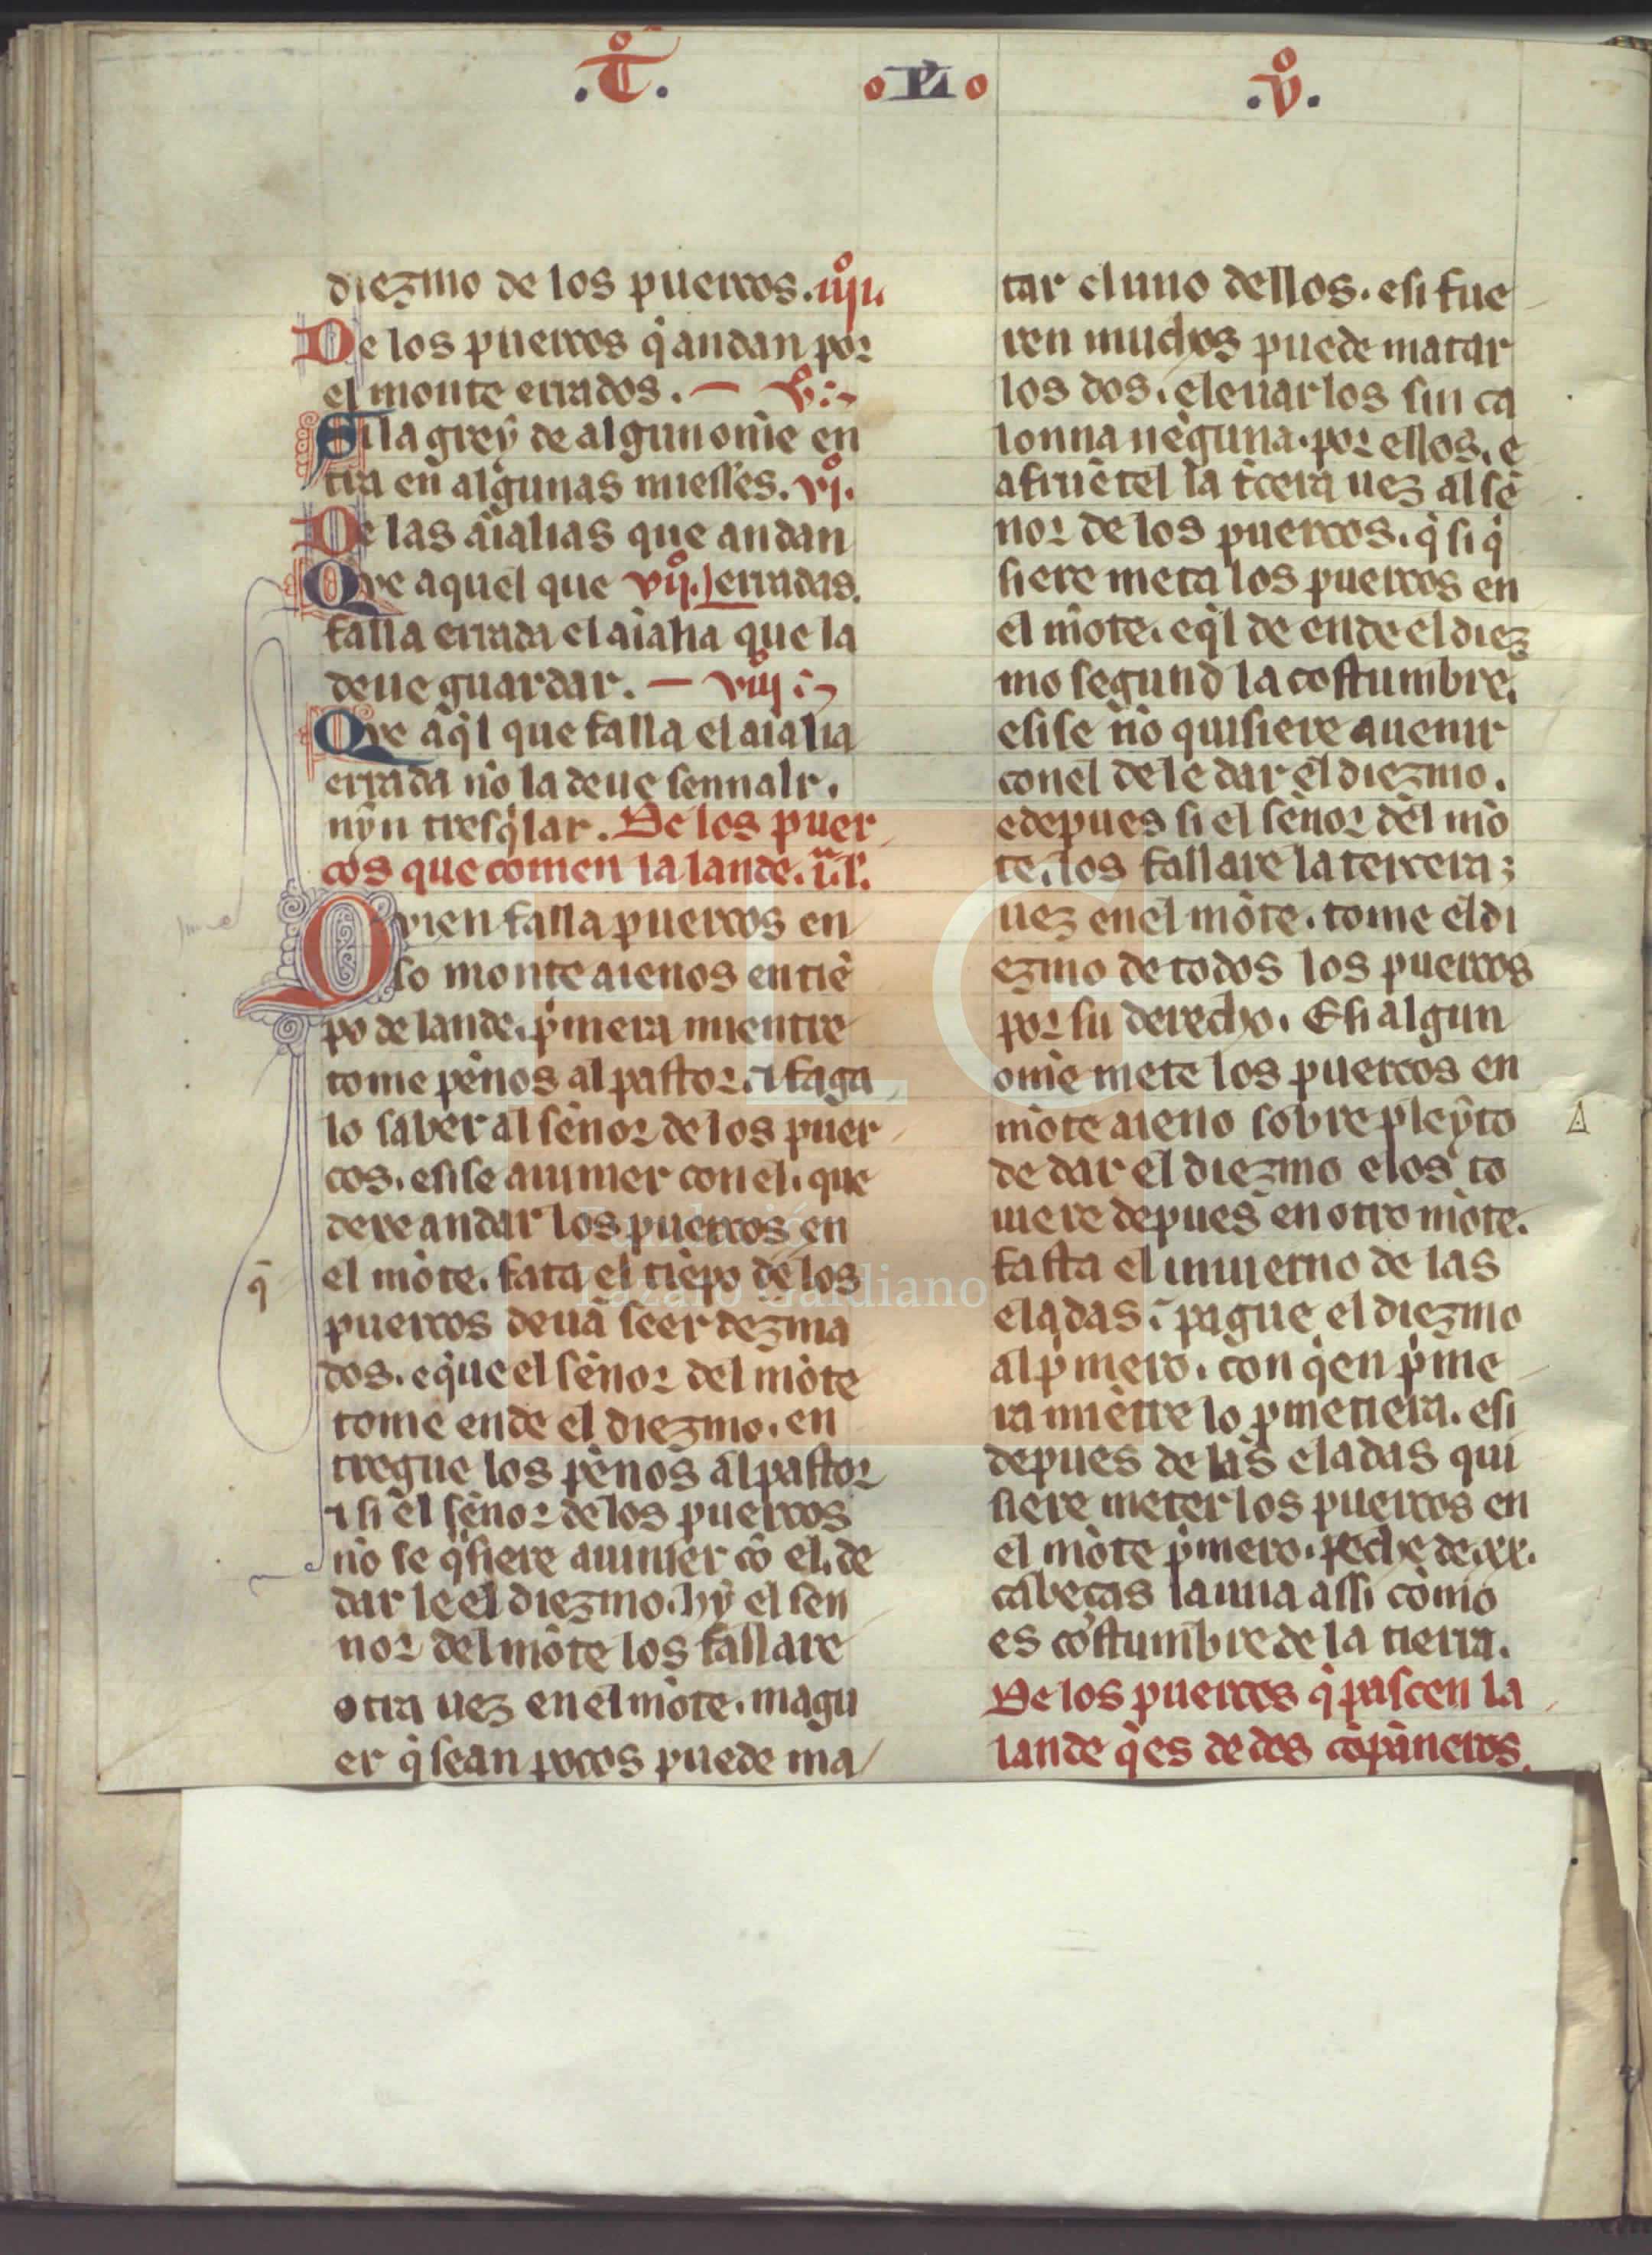 .T̊. o PLI o .v̊.
diezmo de los puercos. iiij̊.
De los puercos q̄ andan por
el monte errados. v̊.
Si la grey de algun om̄e en
tra en algunas miesses. vj̊.
De las aīalias que andan
Que aquel que vij̊. erradas.
falla errada el aīalia que la
deue guardar. viij̊
Que aq̄l que falla el aīalia
errada nō la deue sennalr.
nȳn tresq̄lar. De los puer
cos que comen la lande.
Quien falla puercos en
so monte aienos en tiē
po de lande. p̄mera mientre
tome pēnos al pastor. ⁊ faga
lo saber al sēnor de los puer
cos. e si se auinier con el. que
dexe andar los puercos en
el mōte. fata el tiēpo de los
puercos deuā seer dezma
dos. e q̄ue el sēnor del mōte
tome ende el diezmo. en
tregue los pēnos al pastor
⁊ si el sēnor de los puercos
nō se q̄siere auinier cō el. de
dar le el diezmo. hȳ el sen
nor del mōte los fallare
otra uez en el mōte. magu
er q̄ sean pocos puede ma
tar el uno dellos. e si fue
ren muchos puede matar
los dos. e leuarlos sin ca
lonna neguna. por ellos. e
afruētel la t̄cera uez al sē
nor de los puercos. q̄ si q̄
siere meta los puercos en
el mōte. e q̄l de ende el diez
mo segund la costumbre.
e si se nō quisiere auenir
con el de le dar el diezmo.
e depues si el sēnor del mō
te. los fallare la tercera
uez en el mōte. tome el di
ezmo de todos los puercos
por su derecho. E si algun
om̄e mete los puercos en
mōte aieno sobre pleyto
de dar el diezmo e los to
uiere depues en otro mōte.
fasta el inuierno de las
eladas. pague el diezmo
al p̄mero. con q̄en p̄me
ra miētre lo p̄metiera. e si
depues de las eladas qui
siere meter los puercos en
el mōte p̄mero. peche de .xx.
cabeças la una assi cōmo
es costumbre de la tierra.
De los puercos q̄ pascen la
lande q̄ es de dos cōpāneros.
q̄
FLG
Fundación
Lázaro Galdiano